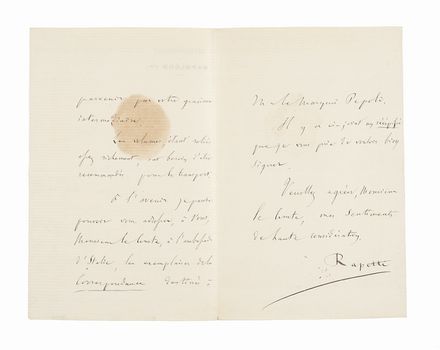 parvenir par votre gracieux
intermédiaire.
Les volumes étant reliés
assez richement, ont besoin d'être
recommandés pour le transport.
À l'avenir je pense
pouvoir vous adresser, à Vous,
Monsieur le Comte, à l'ambassade
d'Italie, les exemplaires de la
Correspondance destinés à
M. le Marquis Pepoli.
Il y a ci-joint un récépissé
que je vous prie de vouloir bien
signer.
Veuillez agréer, Monsieur
le Comte, mes sentiments
de haute considération.
Rapetti